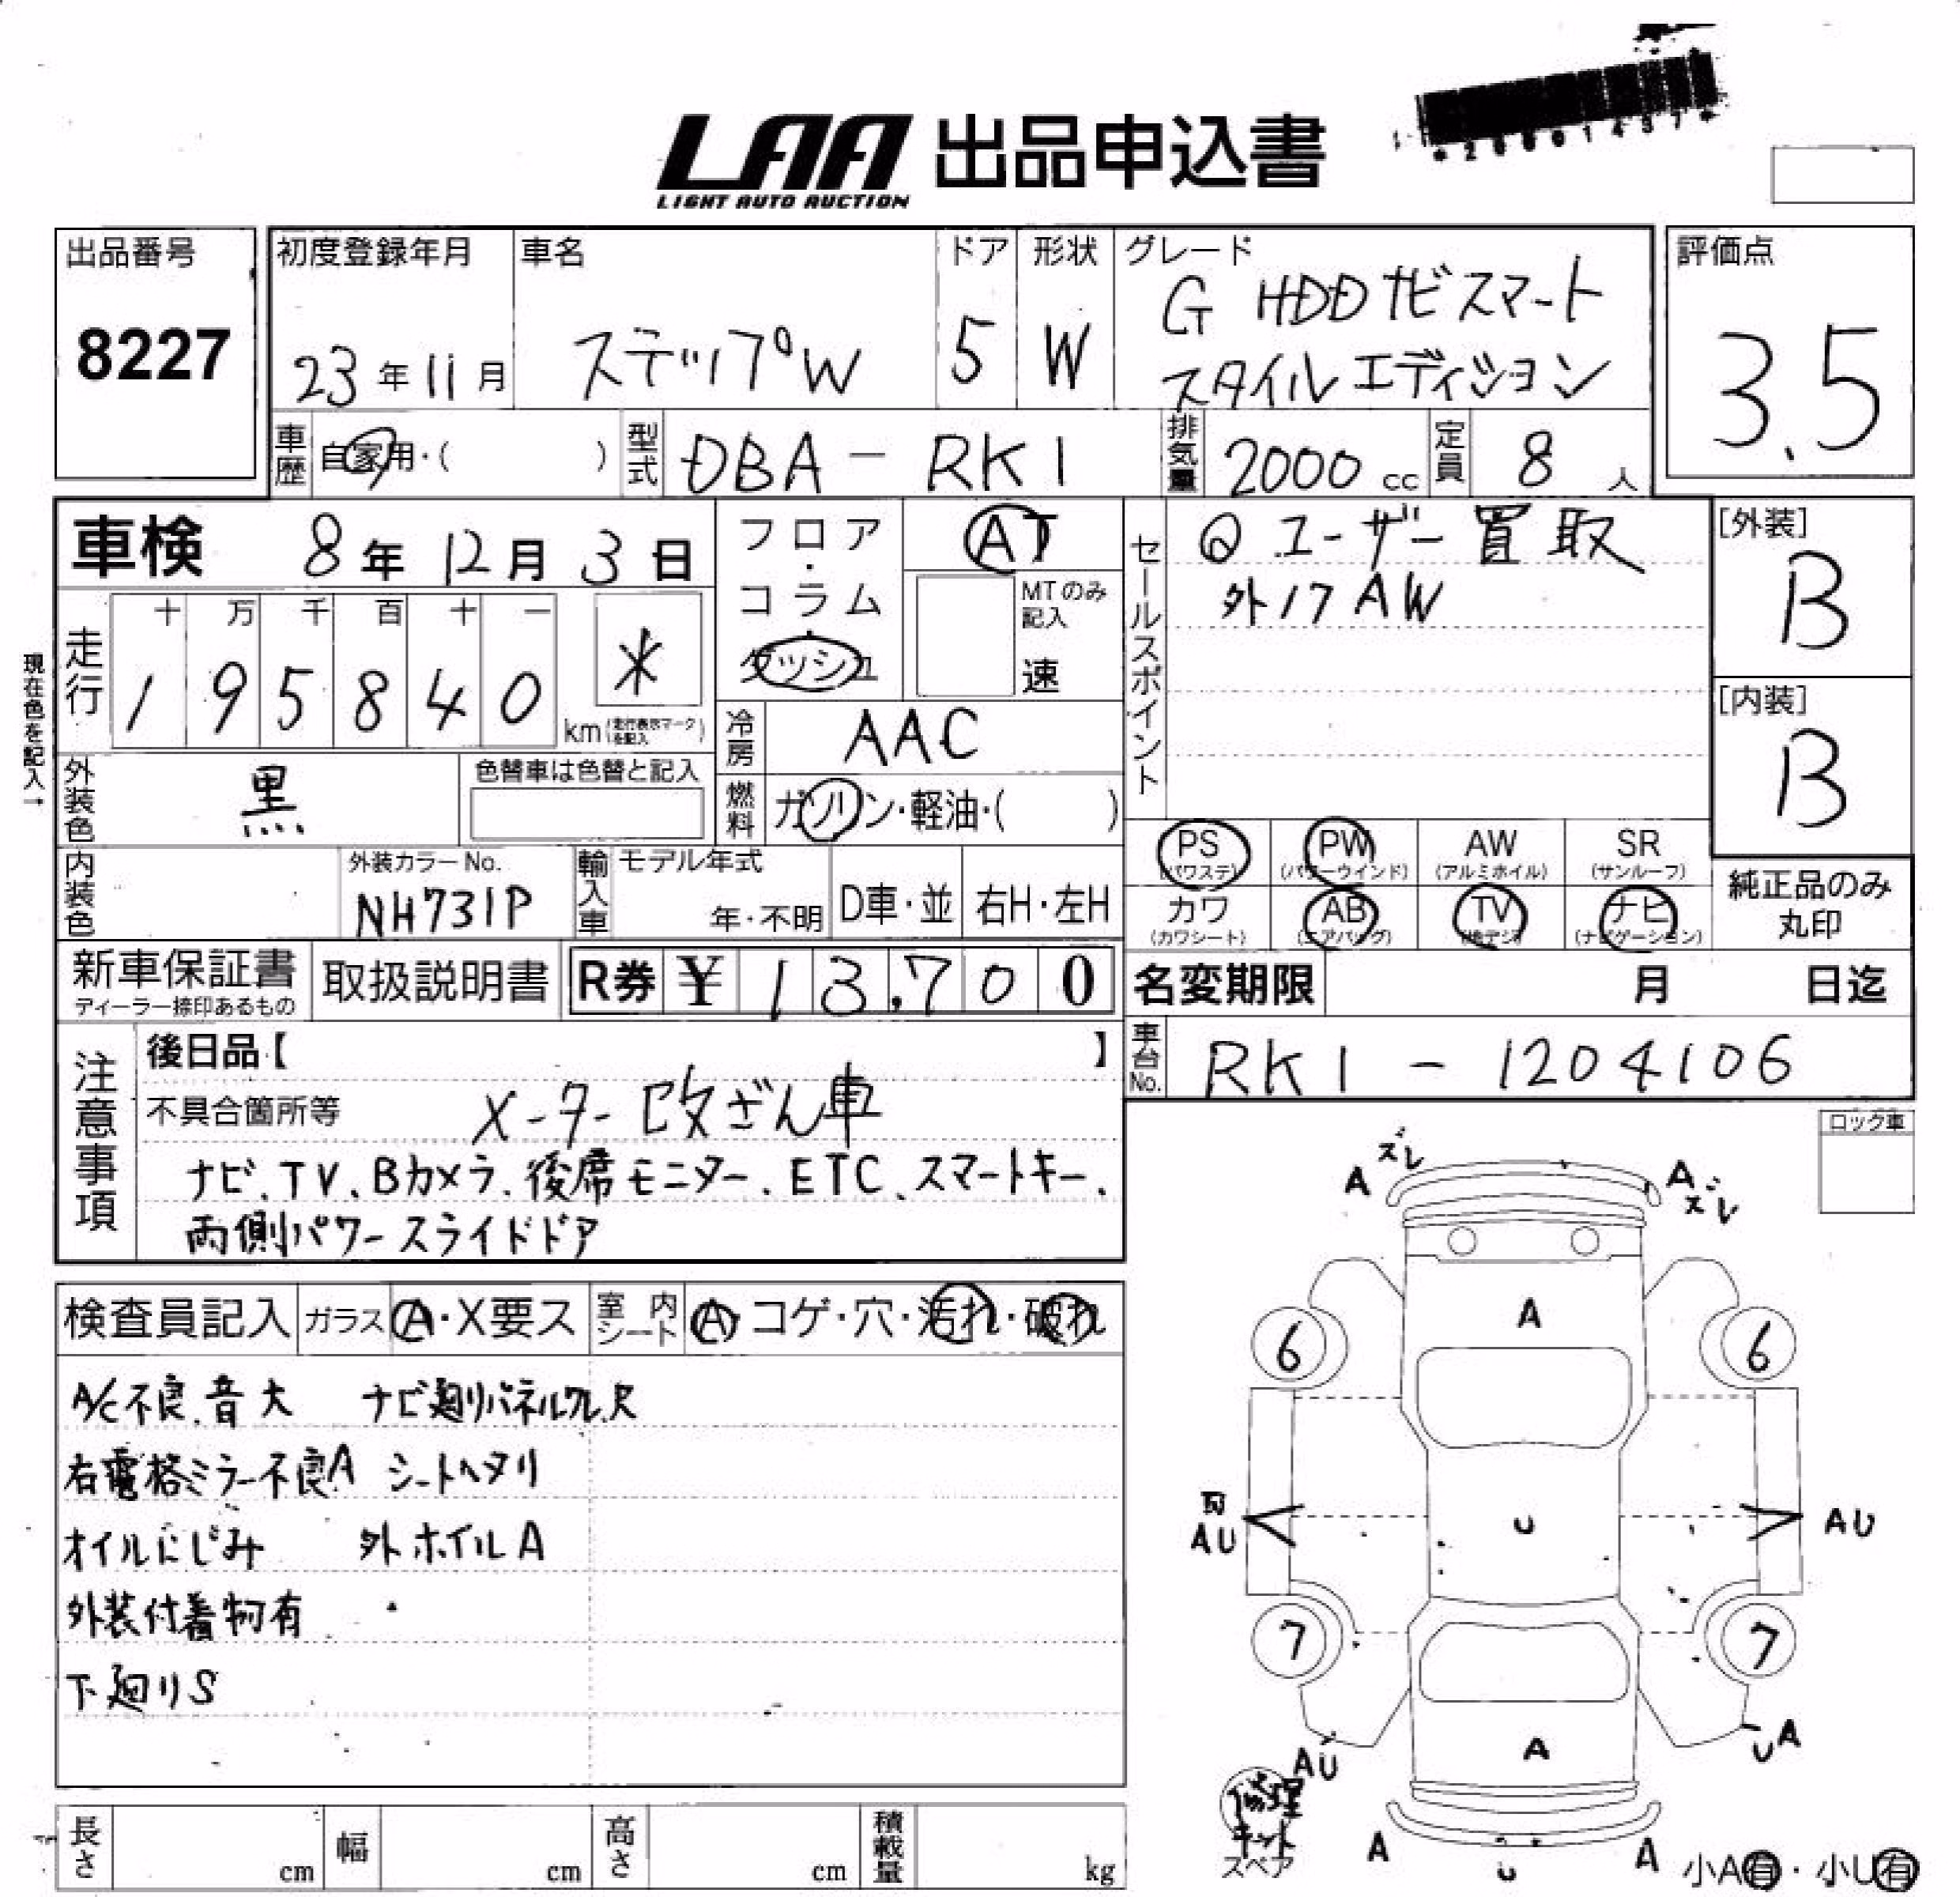 LAA 出品申込書
LIGHT AUTO AUCTION
出品番号
8227
初度登録年月
23年11月
車名
ステップW
ドア
5
形状
W
グレード
G HDDナビスマート
スタイルエディション
評価点
3.5
車歴 自家用・( )
型式 DBA-RK1
排気量 2000 cc
定員 8 人
車検 8年12月3日
フロア・コラム・ダッシュ
AT
MTのみ記入
速
セールスポイント
Q ユーザー買取
外17AW
[外装]
B
[内装]
B
現在色を記入→
走行
十 万 千 百 十 一
1 9 5 8 4 0 km
*
(走行表示マークを記入)
冷房 AAC
燃料 ガソリン・軽油・( )
外装色 黒
色替車は色替と記入
内装色
外装カラーNo.
NH731P
輸入車
モデル年式
年・不明
D車・並
右H・左H
PS (パワステ)
PW (パワーウインド)
AW (アルミホイル)
SR (サンルーフ)
カワ (カワシート)
AB (エアバッグ)
TV (地デジ)
ナビ (ナビゲーション)
純正品のみ
丸印
新車保証書
ディーラー捺印あるもの
取扱説明書
R券 ¥ 13,700
名変期限 月 日迄
車台No. RK1-1204106
注意事項
後日品【 】
不具合箇所等
メーター改ざん車
ナビ、TV、Bカメラ、後席モニター、ETC、スマートキー、
両側パワースライドドア
ロック車
検査員記入
ガラス A・X要ス
室内シート A・コゲ・穴・汚れ・破れ
A/C不良、音大 ナビ廻りパネルワレ、
右電格ミラー不良A シートヘタリ
オイルにじみ 外ホイルA
外装付着物有
下廻りS
A ズレ
A ズレ
A
6
6
AU
U
AU
7
7
AU
A
UA
修理
キット
スペア
A
U
A
小A有・小U有
長さ cm
幅 cm
高さ cm
積載量 kg